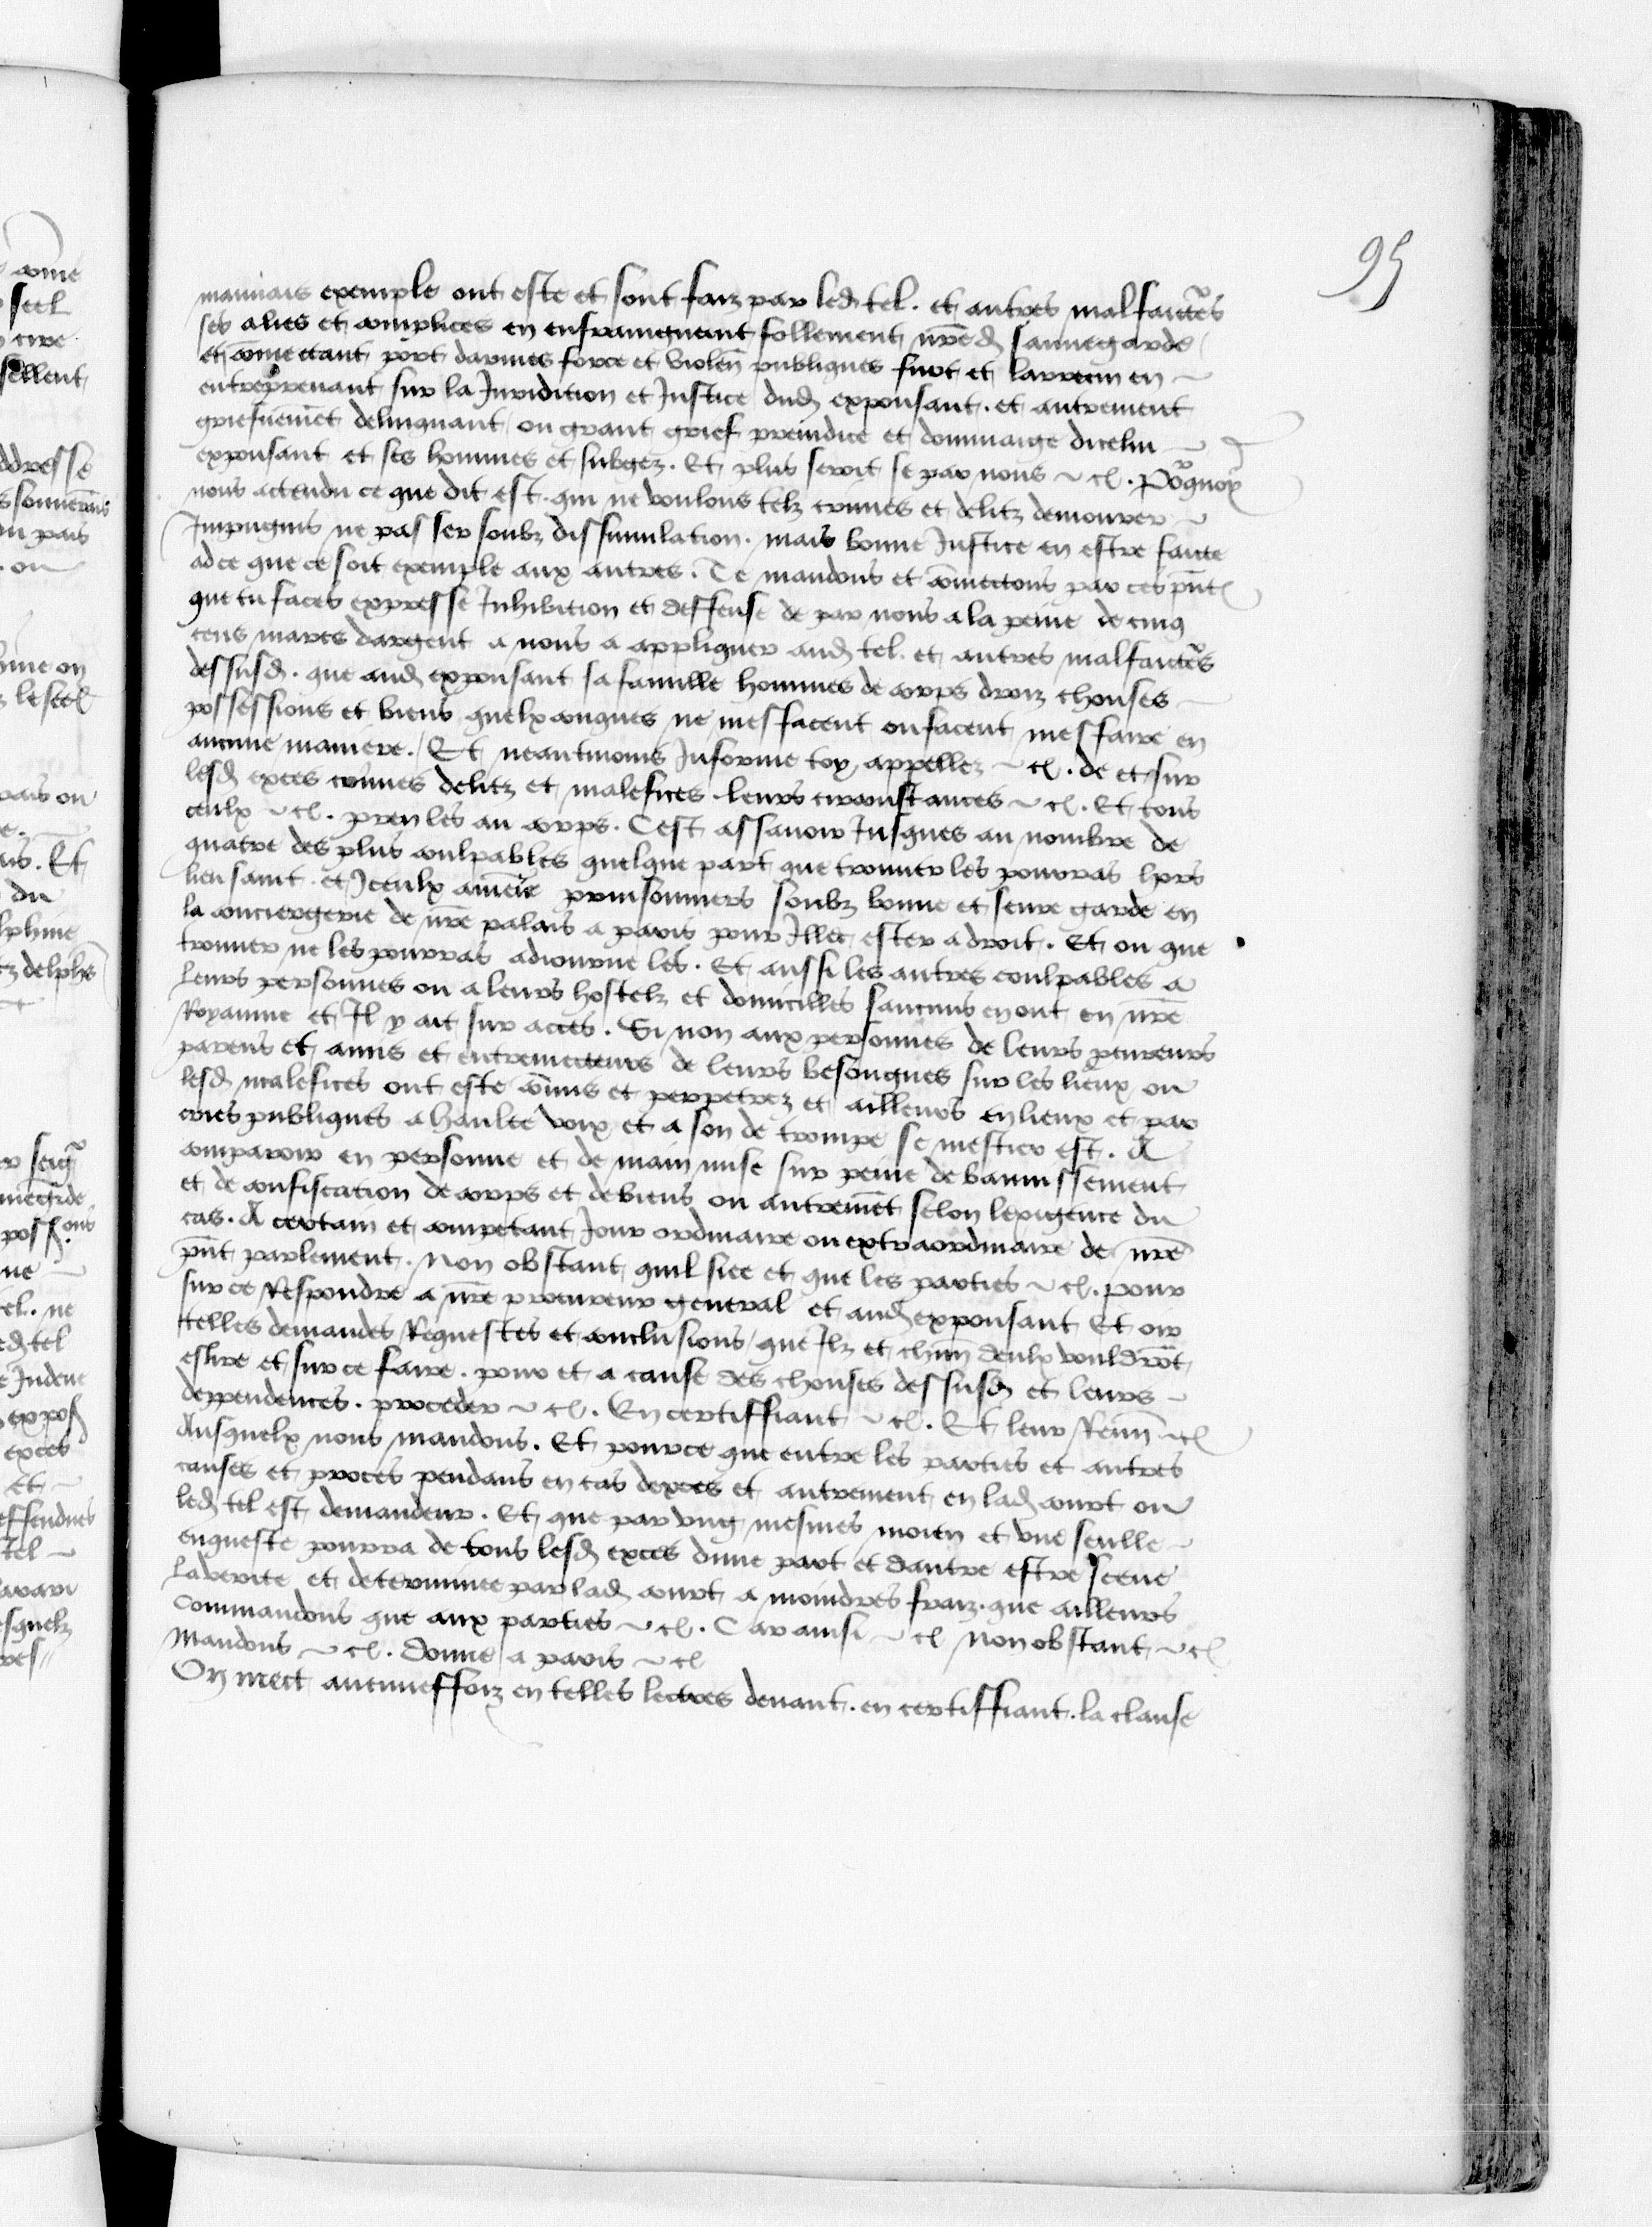 95
mauvais exemple ont este et sont faiz par led tel. et autres malfaictrs
ses alies et complices en enfraingneant follement nr̃ed sauvegarde
et cõmectant port darmes force et violen̄ publiques furt et larrecin en
entreprenant sur la Juridition et Justice dud exponsant. et autrement
griefvemẽt delinquant ou grant grief preiudice et dommaige dicelui
exponsant et ses hommes et subgez. Et plus seroit se par nous etc̃. Porquoy
nous actendu ce que dit est. qui ne voulons telz crimes et delitz demourer
Impugnis ne passer soubz dissimulation. mais bonne Justice en estre faicte
ad ce que ce soit exemple aux autres. Te mandons et cõmectons par ces pñtes
que tu faces expresse Inhibition et deffense de par nous a la peine de cinq
cens marcs dargent a nous a appliquer aud tel. et autres malfaictrs
dessusd. que aud exponsant sa famille hommes de corps droiz chouses
possessions et biens quelxconques ne mesfacent ou facent mesfaire en
aucune maniere. Et neantmoins Informe toy appellez etc̃. de et sur
lesd exces crimes delitz et malefices leurs circonstances etc̃. Et tous
ceulx etc̃. pren les au corps. Cest assavoir Jusques au nombre de
quatre des plus coulpables quelque part que trouver les pourras hors
lieu saint. et Iceulx amẽne prinsonniers soubz bonne et seure garde en
la conciergerie de nr̃e palais a paris pour Illec ester a droit. Et ou que
trouver ne les pourras adiourne les. Et aussi les autres coulpables a
leurs personnes ou a leurs hostelz et domicilles saucuns en ont en nr̃e
Royaume et Il y ait sur acces. Si non aux personnes de leurs procureurs
parens et amis et entremecteurs de leurs besongnes sur les lieux ou
lesd malefices ont este cõmis et perpetrez et ailleurs en lieux et par
cries publiques a haulte voix et a son de trompe se mestier est. A
comparoir en personne et de main mise sur peine de bannissement
et de confiscation de corps et de biens ou autremẽt selon lexigence du
cas. A certain et competant Jour ordinaire ou extraordinaire de nr̃e
pñt parlement. Non obstant quil siee et que les parties etc̃. pour
sur ce Respondre a nr̃e procureur general et aud exponsant Et oir
telles demandes Requestes et conclusions que Ilz et chũn deulx vouldrõt
eslire et sur ce faire. pour et a cause des chouses dessusd et leurs
dependences. proceder etc̃. En certiffiant etc̃. Et leur etc̃
Ausquelx nous mandons. Et pource que entre les parties et autres
causes et proces pendans en cas dexces et autrement en lad court ou
led tel est demandeur. Et que par ung mesmes moien et une seulle
enqueste pourra de tous lesd exces dune part et dautre estre sceue
La verite et determinee par lad court a moindres fraiz. que ailleurs
Commandons que aux parties etc̃. Car ainsi etc̃ Non obstant etc̃
Mandons etc̃. Donne a paris etc̃
On mect aucuneffoiz en telles lectres devant. en certiffiant. la clause